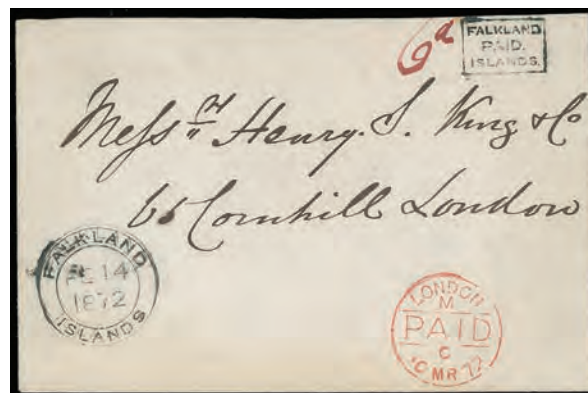 6d
FALKLAND
PAID.
ISLANDS.
Messrs Henry. S. King & Co
65 Cornhill London
FALKLAND
FE 14
1872
ISLANDS
LONDON
M
PAID
C
MR 72